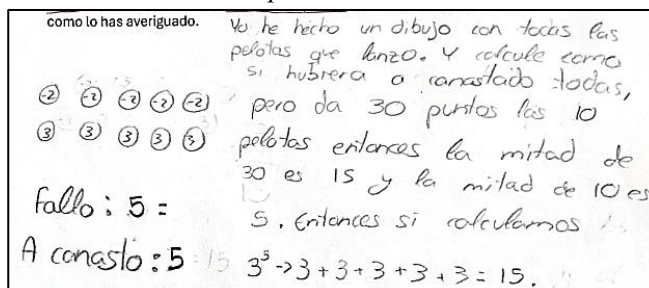 como lo has averiguado.
Yo he hecho un dibujo con todas las
pelotas que lanzo. Y calcule como
si hubiera a canastado todas,
pero da 30 puntos las 10
pelotas entonces la mitad de
30 es 15 y la mitad de 10 es
5. Entonces si calculamos
3⁵->3+3+3+3+3=15.
-2 -2 -2 -2 -2
3 3 3 3 3
Fallo: 5 =
A canasto: 5 15